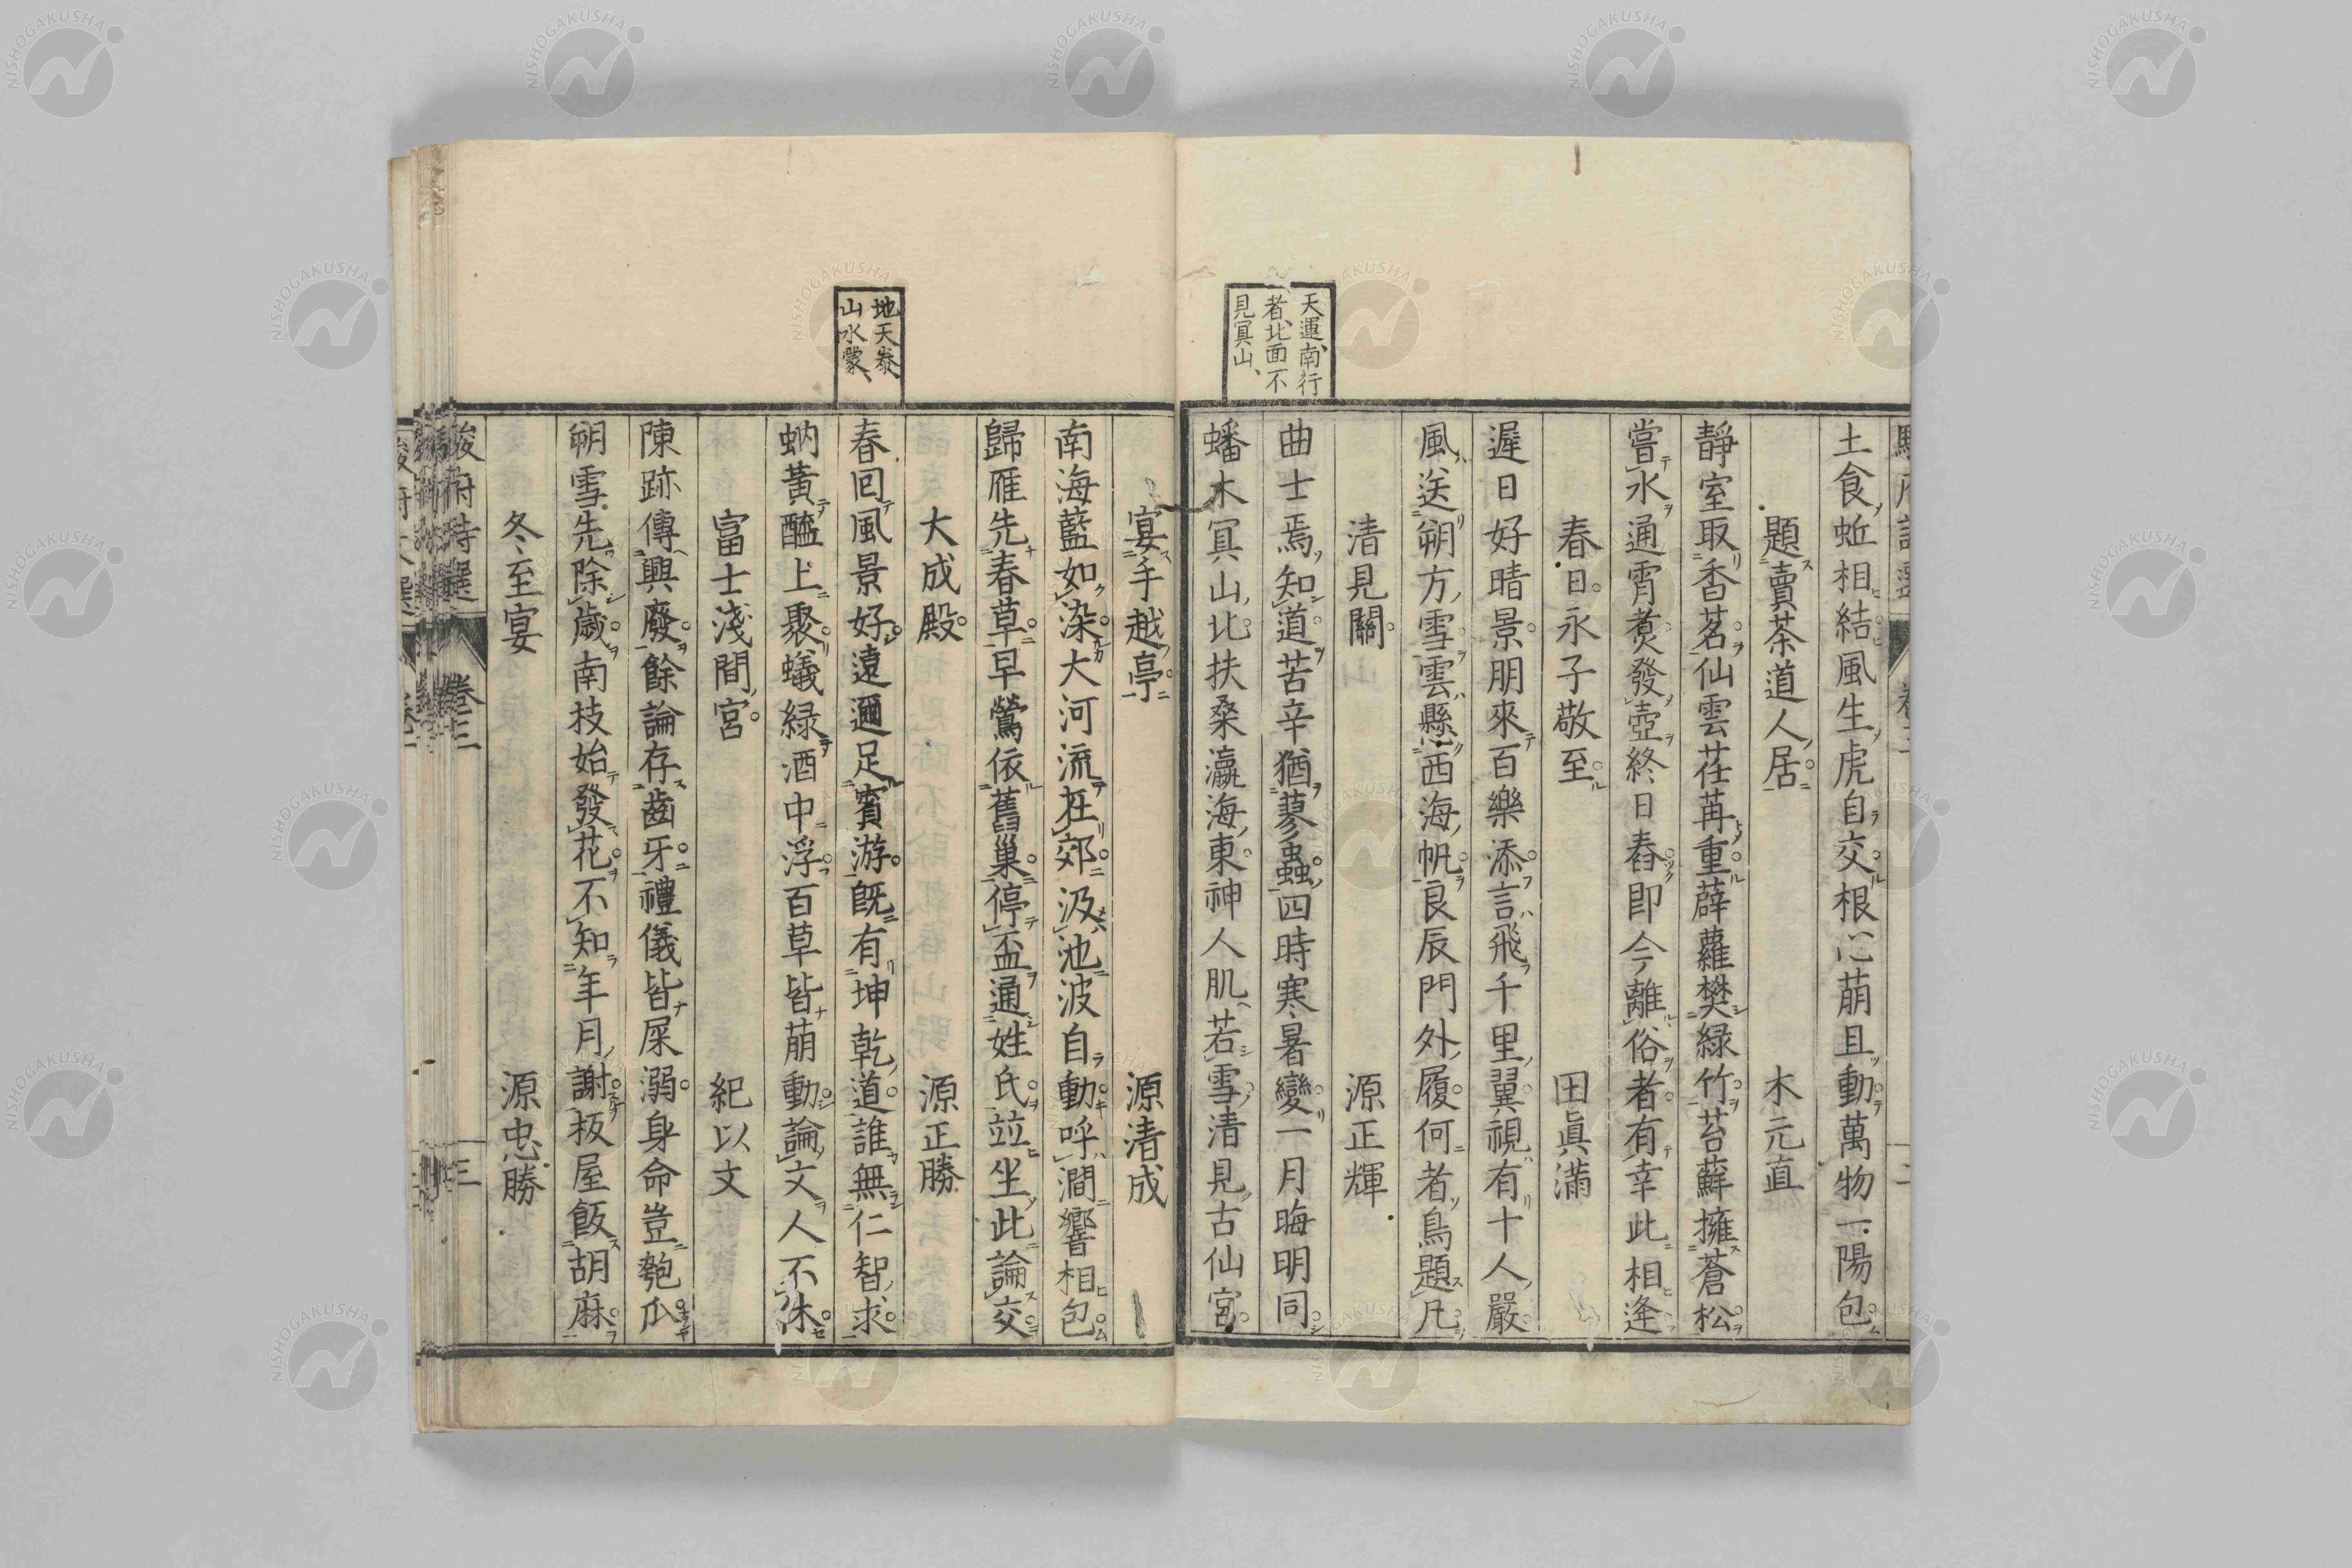 天運、南行
者、北面不
見冥山、
土食蚯相結風生虎自交根心萌且動萬物一陽包
題賣茶道人居　木元直
靜室取香茗仙雲荏苒重薜蘿樊綠竹苔蘚擁蒼松
嘗水通霄煮發壺終日舂即今離俗者有幸此相逢
春日永子敬至　田眞滿
遲日好晴景朋來百樂添言飛千里翼視有十人嚴
風送朔方雪雲懸西海帆良辰門外履何者鳥題凡
清見關　源正輝
曲士焉知道苦辛猶蓼蟲四時寒暑變一月晦明同
蟠木冥山北扶桑瀛海東神人肌若雪清見古仙宮
地天泰、
山水蒙、
宴手越亭　源清成
南海藍如染大河流在郊汲池波自動呼澗響相包
歸雁先春草早鶯依舊巢停盃通姓氏竝坐此論交
大成殿　源正勝
春回風景好遠邇足賓游既有坤乾道誰無仁智求
蚋黃醯上聚蟻綠酒中浮百草皆萌動論文人不休
富士淺間宮　紀以文
陳跡傳興廢餘論存齒牙禮儀皆屎溺身命豈匏瓜
朔雪先除歲南枝始發花不知年月謝板屋飯胡麻
冬至宴　源忠勝
駿府詩選　卷三　三
NISHOGAKUSHA